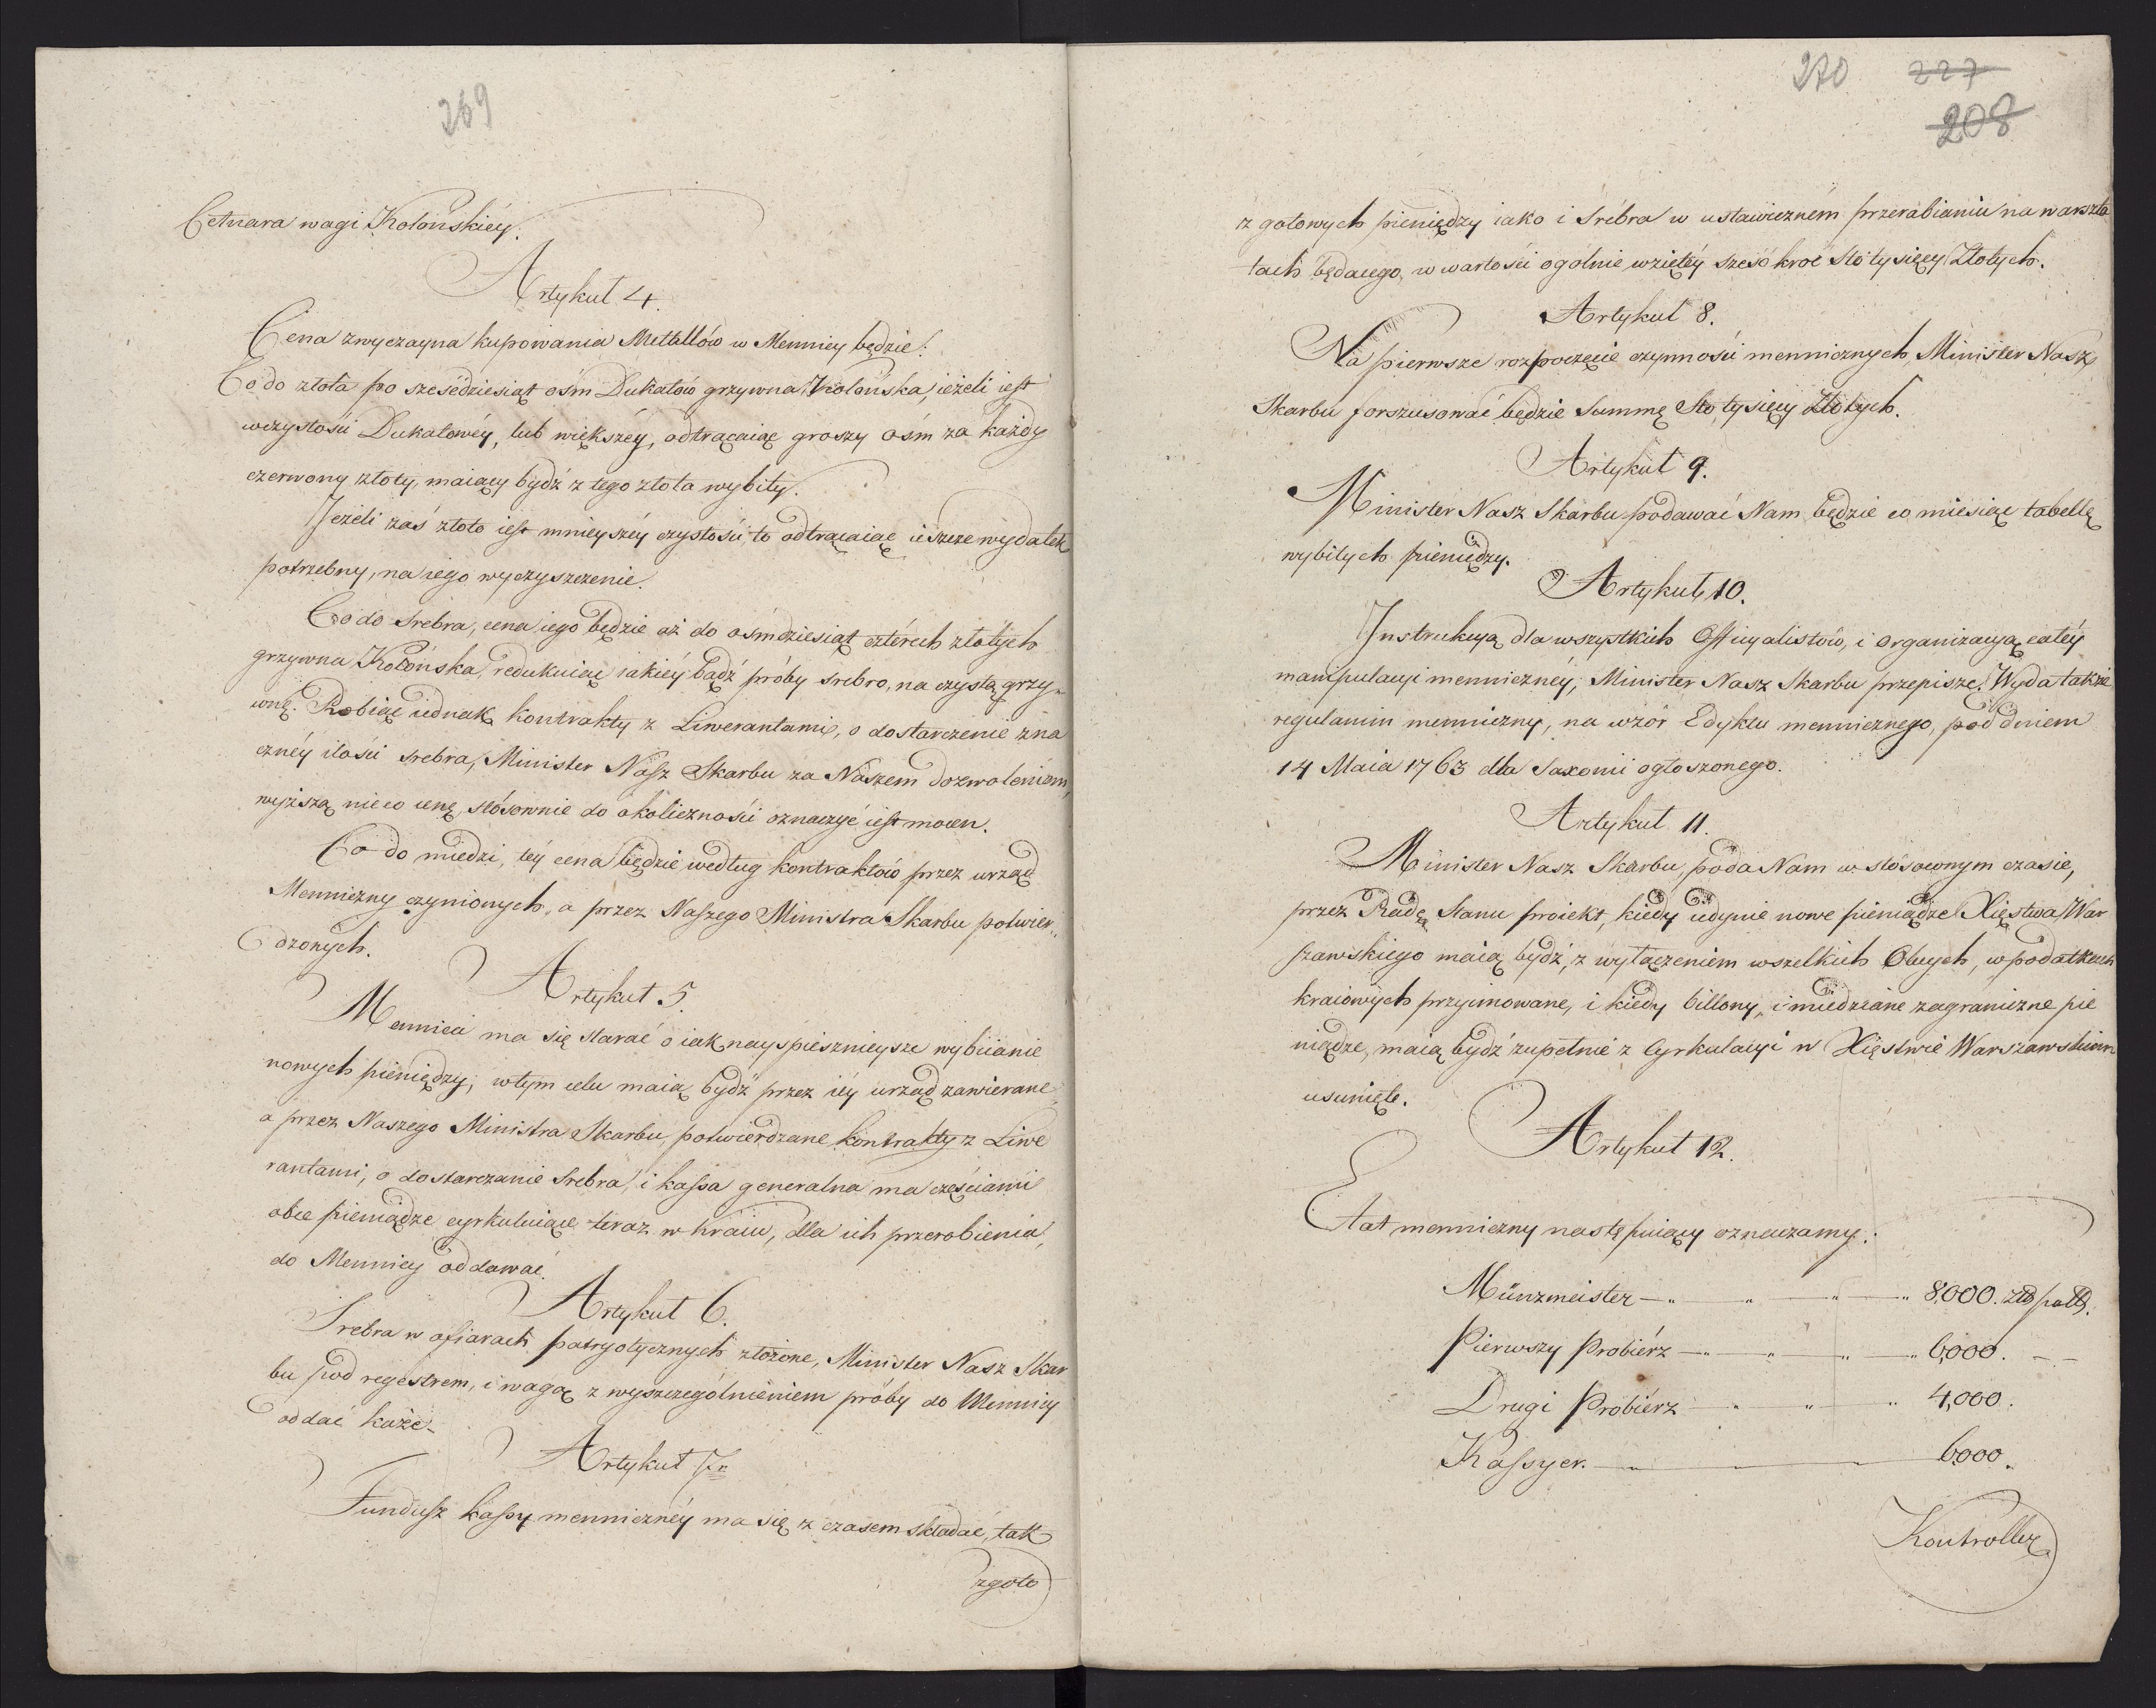 269
Cetnara wagi Kolońskiéy.
Artykuł 4.
Cena zwyczayna kupowania Mettallów w Mennicy będzie:
Co do złota po sześćdziesiąt ośm Dukatów grzywna Kolońska, ieżeli iest
w czystości Dukatowéy, lub większéy, odtrącaiąc groszy ośm za każdy
czerwony złoty, maiący bydź z tego złota wybity.
Jeżeli zaś złoto iest mnieyszéy czystości, to odtrącaiąc ieszcze wydatek
potrzebny, na iego wyczyszczenie.
Co do srebra, cena iego będzie aż do ośmdziesiąt czterech złotych
grzywna Kolońska, redukuiąc iakiéy bądź próby srebro, na czystą grzy-
wnę. Robiąc iednak kontrakty z Liwerantami, o dostarczenie zna
cznéy ilości srebra, Minister Nasz Skarbu za Naszem dozwoleniem,
wyższą nieco cenę, stósownie do okoliczności oznaczyć iest mocen.
Co do miedzi, téy cena będzie według kontraktów przez urząd
Menniczny czynionych, a przez Naszego Ministra Skarbu potwier-
dzonych.
Artykuł 5.
Mennica ma się starać o iak nayspiesznieysze wybiianie
nowych pieniędzy; w tym celu maią bydź przez iéy urząd zawierane
a przez Naszego Ministra Skarbu, potwierdzane kontrakty z Liwe
rantami, o dostarczanie srebra, i kassa generalna ma częściami
obce pieniądze cyrkuluiące teraz w kraiu, dla ich przerobienia,
do Mennicy oddawać.
Artykuł 6.
Srebra w ofiarach patryotycznych złożone, Minister Nasz Skar
bu pod regestrem, i wagą z wyszczególnieniem próby do Mennicy
oddać każe.
Artykuł 7.
Fundusz kassy mennicznéy ma się z czasem składać, tak
z goto
270 227
208
z gotowych pieniędzy iako i srébra w ustawiczném przerabianiu na warszta
tach będącego, w wartości ogólnie wziętéy sześć kroć sto tysięcy Złotych.
Artykuł 8.
Na pierwsze rozpoczęcie czynności mennicznych, Minister Nasz
Skarbu forszusować będzie Summę Sto tysięcy Złotych.
Artykuł 9.
Minister Nasz Skarbu podawać Nam będzie co miesiąc tabellę
wybitych pieniędzy.
Artykuł 10.
Instrukcyą dla wszystkich Officyalistów, i organizacyą całéy
manipulacyi menniczney, Minister Nasz Skarbu przepisze. Wyda także
regulamin menniczny, na wzór Edyktu mennicznego, pod dniem
14 Maia 1763 dla Saxonii ogłoszonego.
Artykuł 11.
Minister Nasz Skarbu, poda Nam w stósownym czasie,
przez Radę Stanu proiekt, kiedy iedynie nowe pieniądze Xięstwa War
szawskiego maią bydź, z wyłączeniem wszelkich Obcych, w podatkach
kraiowych przyimowane, i kiedy billony, i miedziane zagraniczne pie
niądze, maią bydź zupełnie z Cyrkulacyi w Xięstwie Warszawskiem
usunięte.
Artykuł 12.
Etat menniczny następuiący oznaczamy:
Münzmeister — " " — " 8,000. złł poll.
Pierwszy Probiérz — " " " — " 6,000. — . —
Drugi Probiérz — " " " 4,000.
Kassyer. — " — " — 6000.
Kontroller